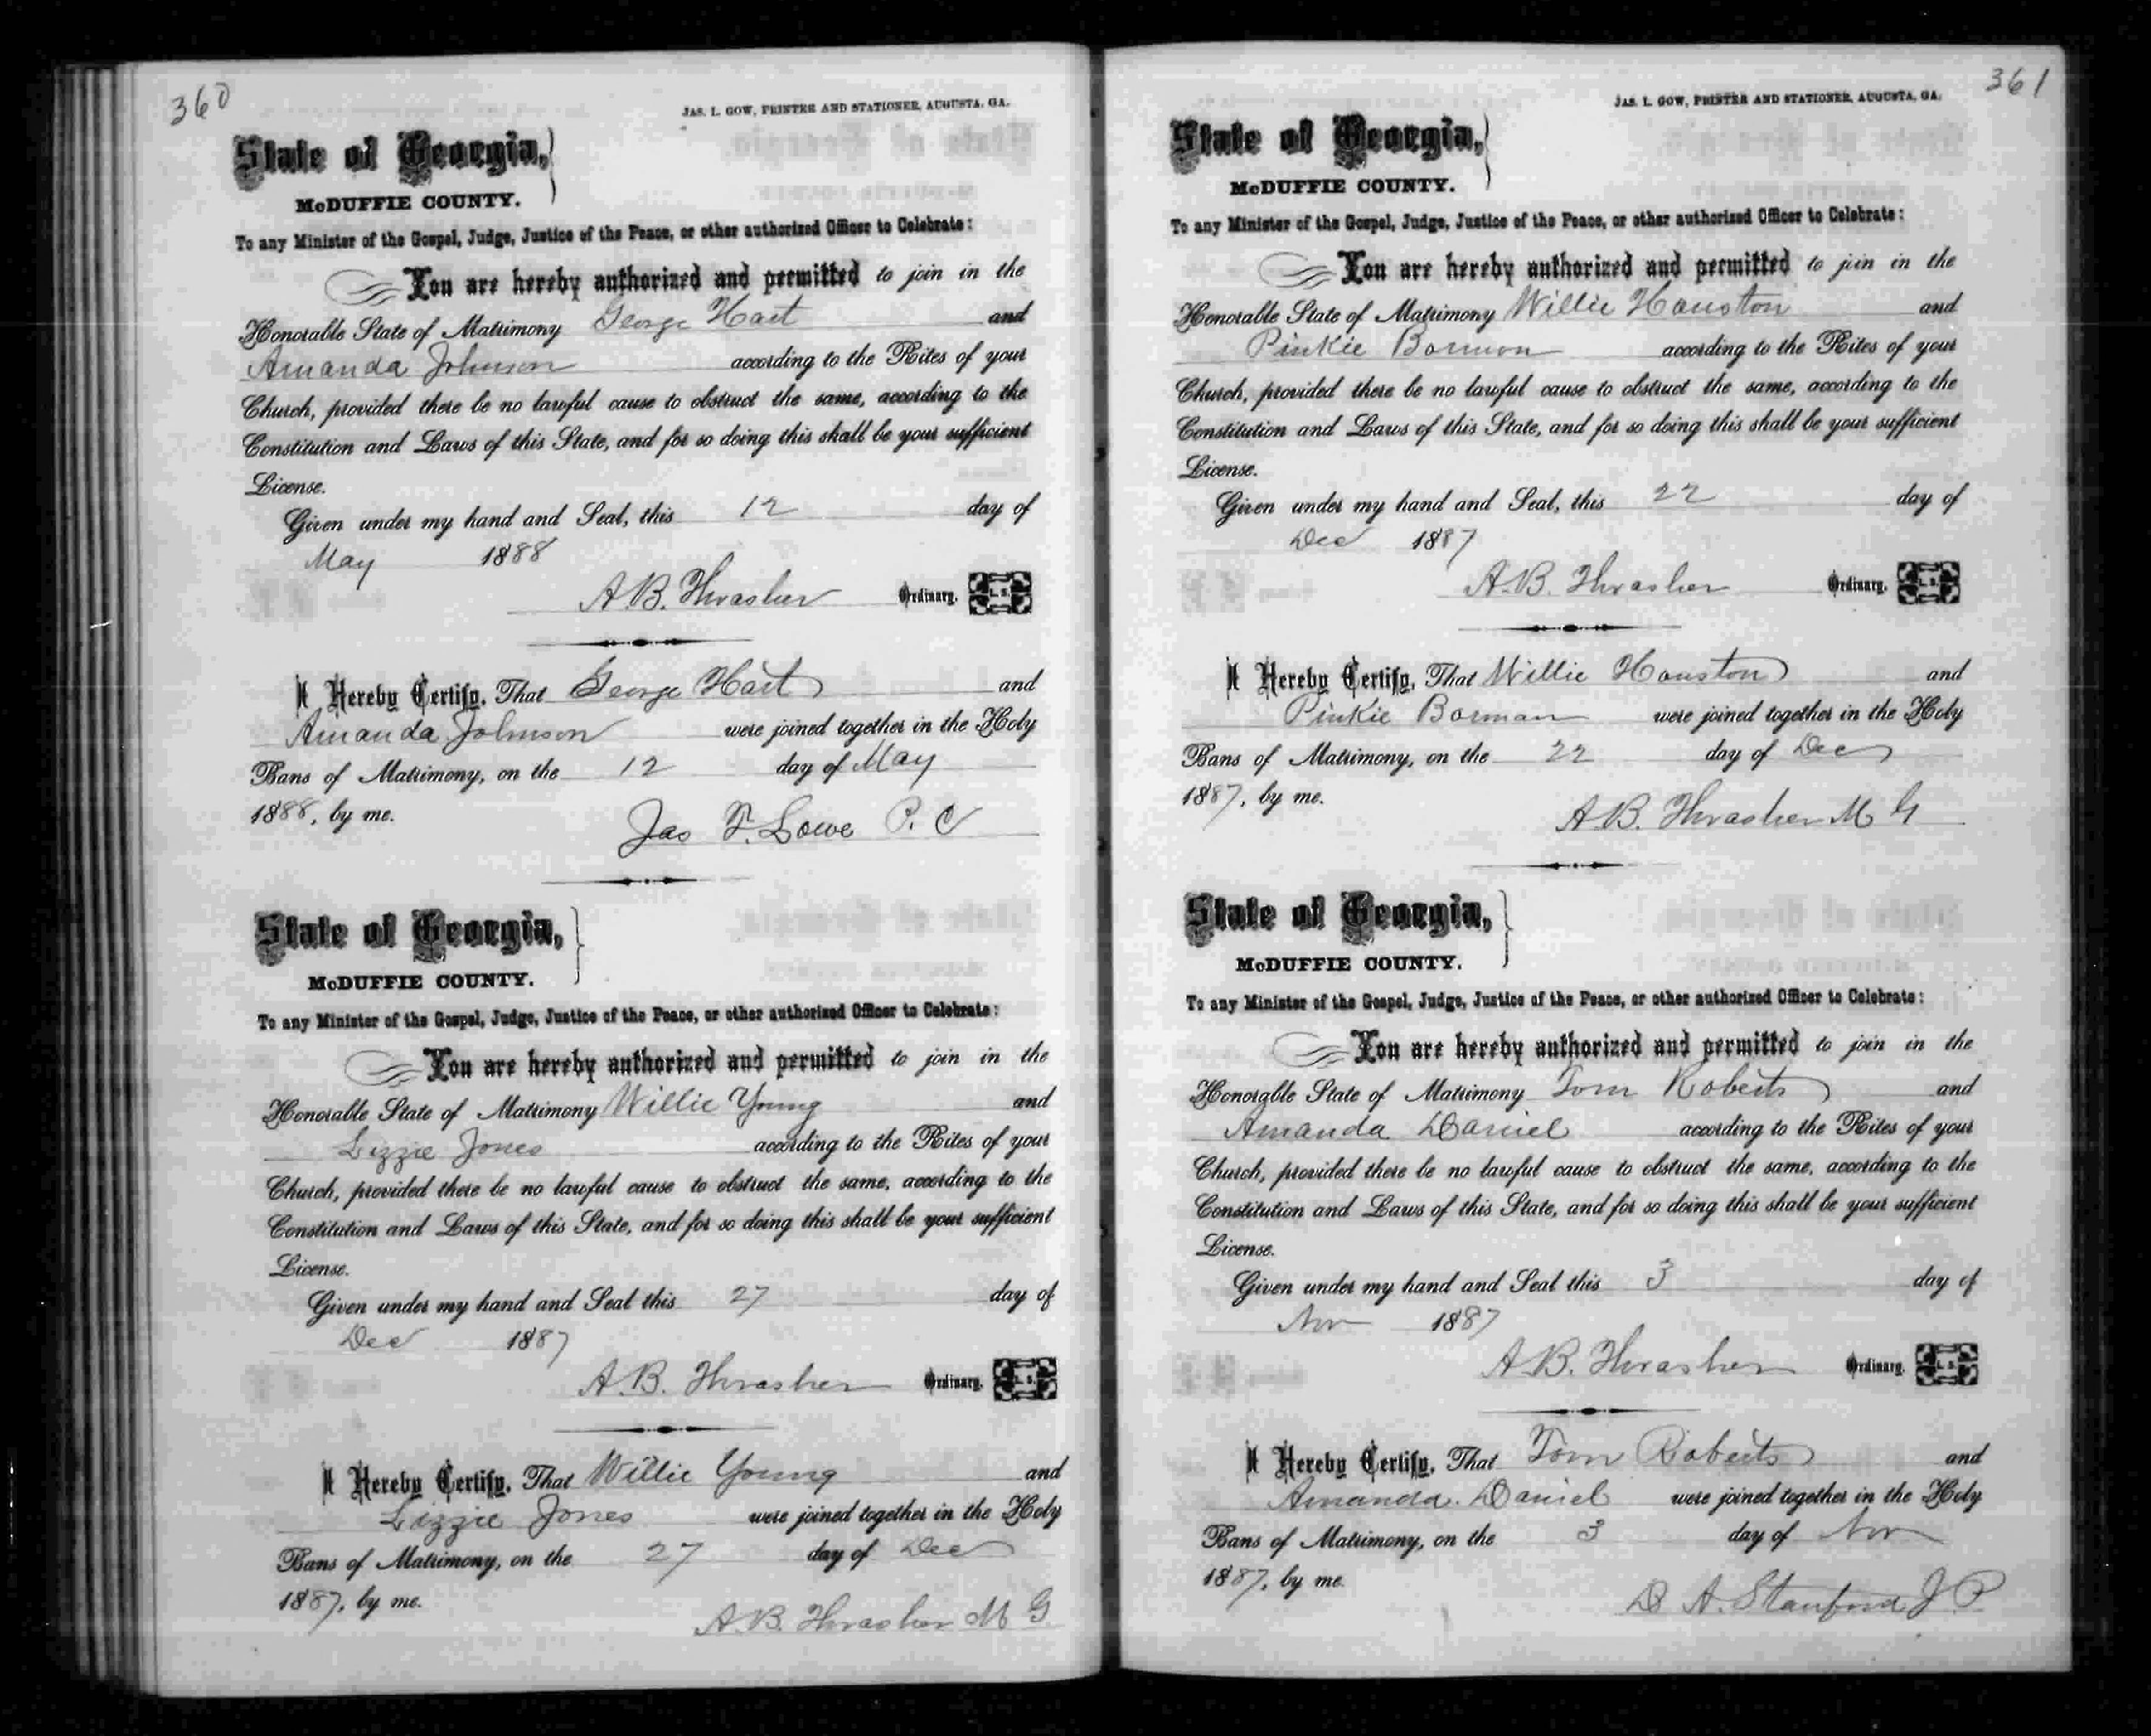 360
JAS. L. GOW, PRINTER AND STATIONER, AUGUSTA, GA.
State of Georgia,
McDUFFIE COUNTY.
To any Minister of the Gospel, Judge, Justice of the Peace, or other authorized Officer to Celebrate:
You are hereby authorized and permitted to join in the
Honorable State of Matrimony George Hart and
Amanda Johnson according to the Rites of your
Church, provided there be no lawful cause to obstruct the same, according to the
Constitution and Laws of this State, and for so doing this shall be your sufficient
License.
Given under my hand and Seal, this 12 day of
May 1888
A.B. Thrasher Ordinary. L. S.
I Hereby Certify, That George Hart and
Amanda Johnson were joined together in the Holy
Bans of Matrimony, on the 12 day of May
1888, by me.
Jas T. Lowe P. C
State of Georgia,
McDUFFIE COUNTY.
To any Minister of the Gospel, Judge, Justice of the Peace, or other authorized Officer to Celebrate:
You are hereby authorized and permitted to join in the
Honorable State of Matrimony Willie Young and
Lizzie Jones according to the Rites of your
Church, provided there be no lawful cause to obstruct the same, according to the
Constitution and Laws of this State, and for so doing this shall be your sufficient
License.
Given under my hand and Seal this 27 day of
Dec 1887
A.B. Thrasher Ordinary. L. S.
I Hereby Certify, That Willie Young and
Lizzie Jones were joined together in the Holy
Bans of Matrimony, on the 27 day of Dec
1887, by me.
A.B. Thrasher M G
361
JAS. L. GOW, PRINTER AND STATIONER, AUGUSTA, GA.
State of Georgia,
McDUFFIE COUNTY.
To any Minister of the Gospel, Judge, Justice of the Peace, or other authorized Officer to Celebrate:
You are hereby authorized and permitted to join in the
Honorable State of Matrimony Willie Houston and
Pinkie Bormon according to the Rites of your
Church, provided there be no lawful cause to obstruct the same, according to the
Constitution and Laws of this State, and for so doing this shall be your sufficient
License.
Given under my hand and Seal, this 22 day of
Dec 1887
A.B. Thrasher Ordinary. L. S.
I Hereby Certify, That Willie Houston and
Pinkie Borman were joined together in the Holy
Bans of Matrimony, on the 22 day of Dec
1887, by me.
A.B. Thrasher M G
State of Georgia,
McDUFFIE COUNTY.
To any Minister of the Gospel, Judge, Justice of the Peace, or other authorized Officer to Celebrate:
You are hereby authorized and permitted to join in the
Honorable State of Matrimony Tom Roberts and
Amanda Daniel according to the Rites of your
Church, provided there be no lawful cause to obstruct the same, according to the
Constitution and Laws of this State, and for so doing this shall be your sufficient
License.
Given under my hand and Seal this 3 day of
Nov 1887
A.B. Thrasher Ordinary. L. S.
I Hereby Certify, That Tom Roberts and
Amanda Daniel were joined together in the Holy
Bans of Matrimony, on the 3 day of Nov
1887, by me.
A. Stanford J P